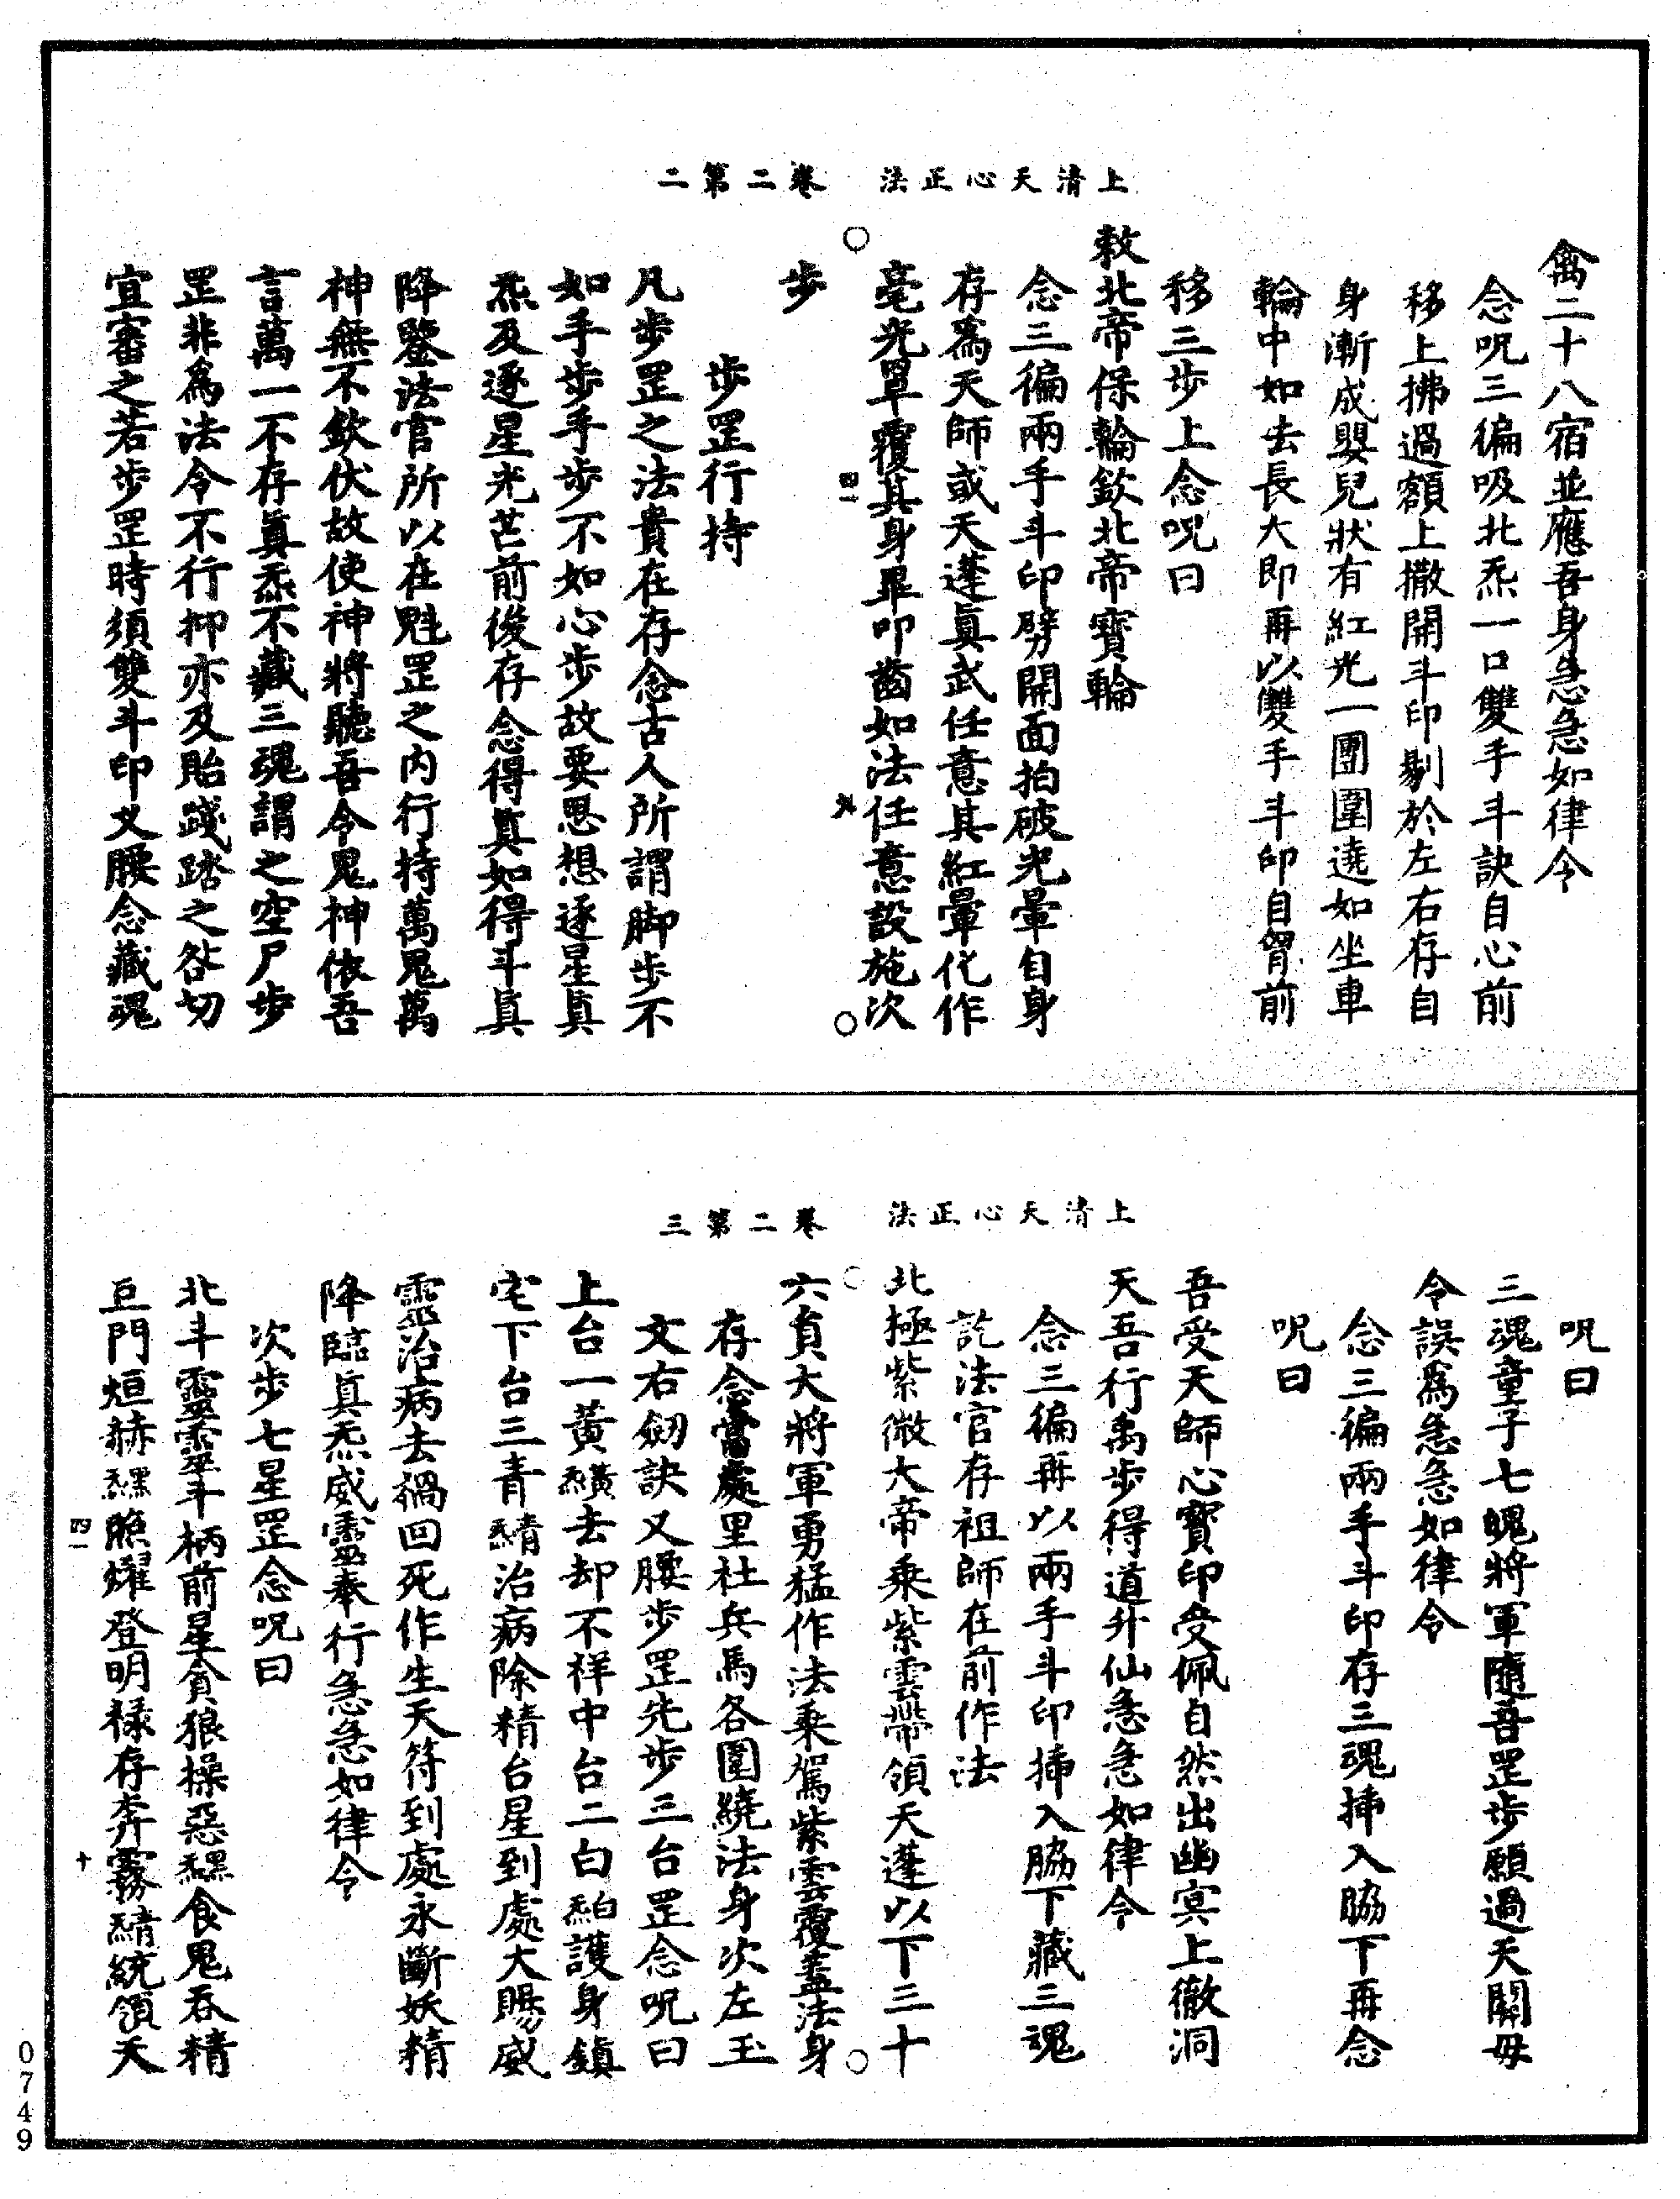 上清天心正法　卷二第二
禽二十八宿並應吾身急急如律令
念呪三徧吸北炁一口雙手斗訣自心前
移上拂過額上撒開斗印剔於左右存自
身漸成嬰兒狀有紅光一團圍遶如坐車
輪中如去長大即再以雙手斗印自胷前
移三步上念呪曰
敕北帝保輪欽北帝寶輪
念三徧兩手斗印劈開面拍破光暈自身
存爲天師或天蓬眞武任意其紅暈化作
毫光罩覆其身畢叩齒如法任意設施次
四一
九
步
步罡行持
凡步罡之法貴在存念古人所謂脚步不
如手步手步不如心步故要思想逐星眞
炁及逐星光芒前後存念得眞如得斗眞
降鑒法官所以在魁罡之内行持萬鬼萬
神無不欽伏故使神將聽吾令鬼神依吾
言萬一不存眞炁不藏三魂謂之空尸步
罡非爲法令不行抑亦及貽踐踏之咎切
宜審之若步罡時須雙斗印叉腰念藏魂
上清天心正法　卷二第三
呪曰
三魂童子七魄將軍隨吾罡步願過天關毋
令誤爲急急如律令
念三徧兩手斗印存三魂揷入脇下再念
呪曰
吾受天師心寶印受佩自然出幽冥上徹洞
天吾行禹步得道升仙急急如律令
念三徧再以兩手斗印揷入脇下藏三魂
訖法官存祖師在前作法
北極紫微大帝乘紫雲帶領天蓬以下三十
六員大將軍勇猛作法乘駕紫雲覆蓋法身
存念當處里社兵馬各圍繞法身次左玉
文右劒訣叉腰步罡先步三台罡念呪曰
上台一黃炁横去却不祥中台二白炁白護身鎮
宅下台三青炁精治病除精台星到處大賜威
靈治病去禍回死作生天符到處永斷妖精
降臨眞炁威靈奉行急急如律令
次步七星罡念呪曰
北斗靈靈斗柄前星貪狼操惡炁黑食鬼吞精
巨門烜赫炁黑照燿登明祿存奔霧炁精統領天
四一
十
0749